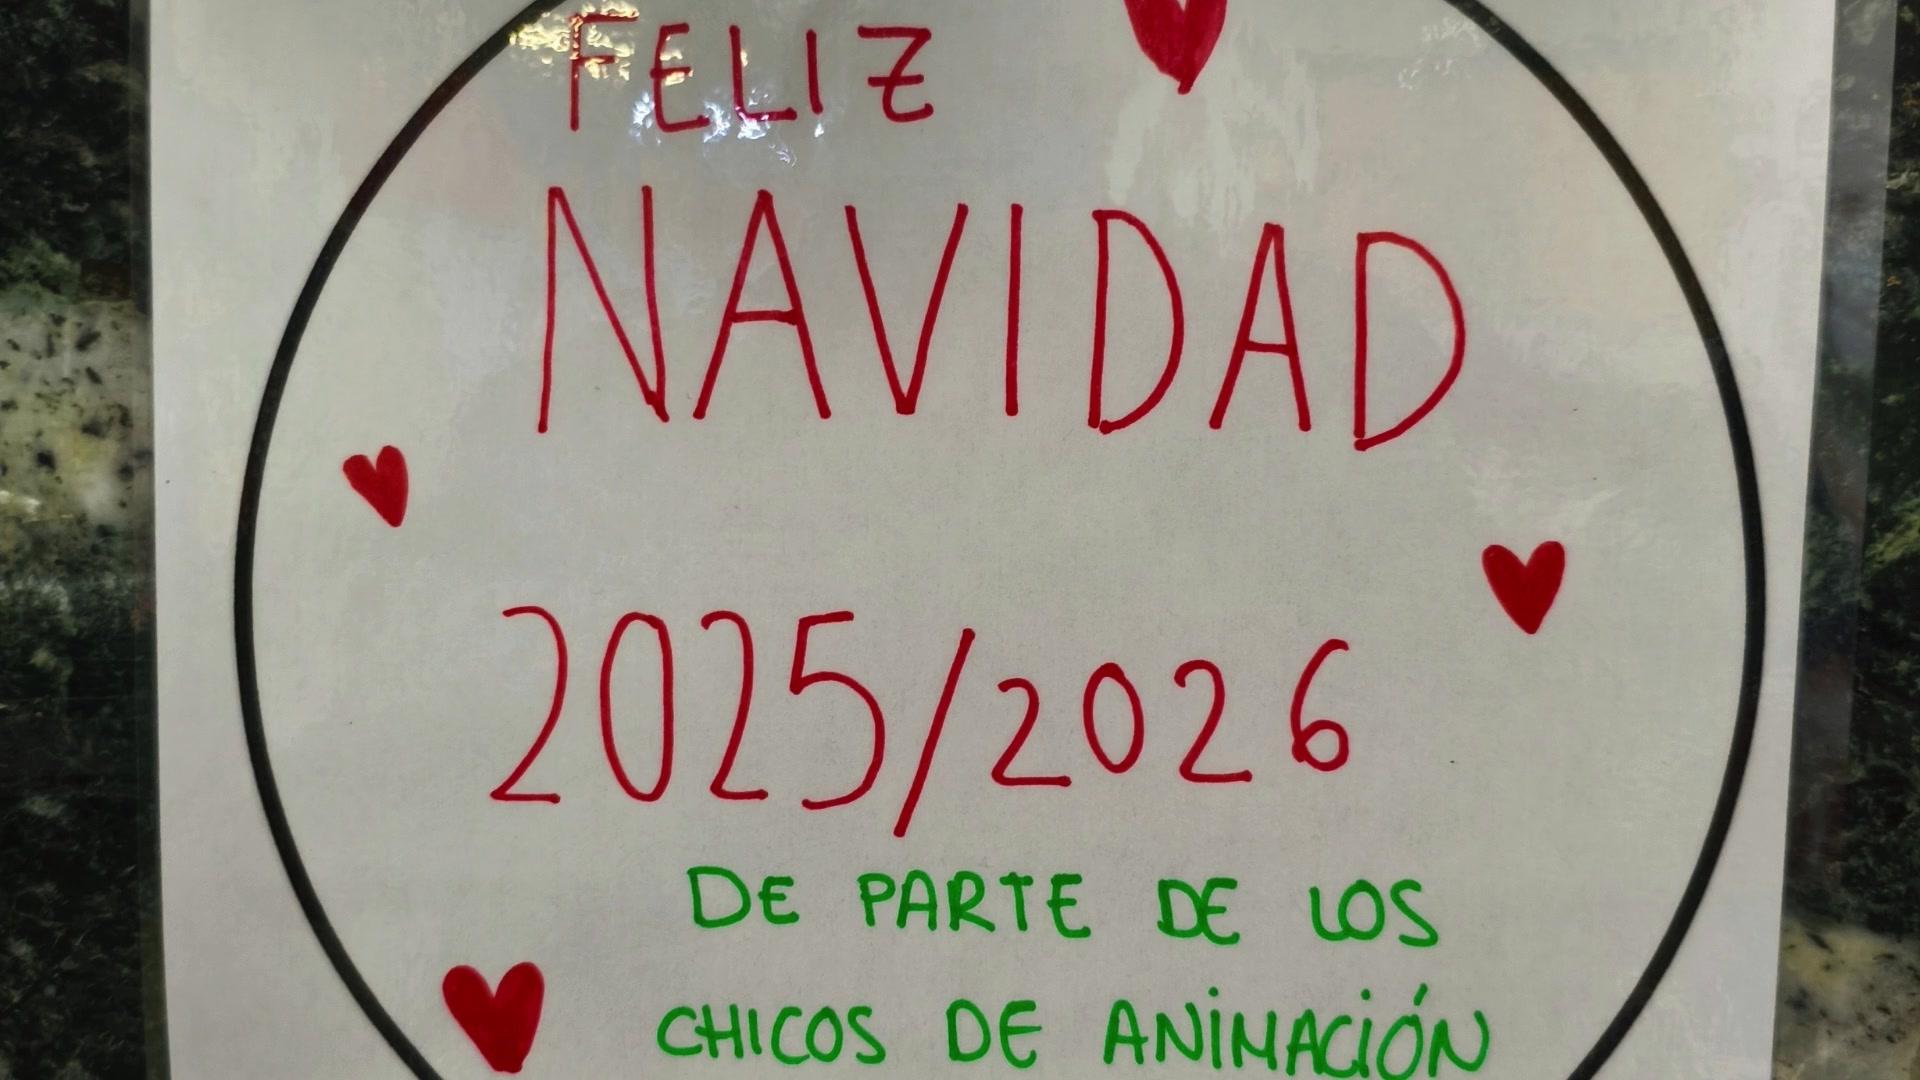 FELIZ
NAVIDAD
2025/2026
DE PARTE DE LOS
CHICOS DE ANIMACIÓN